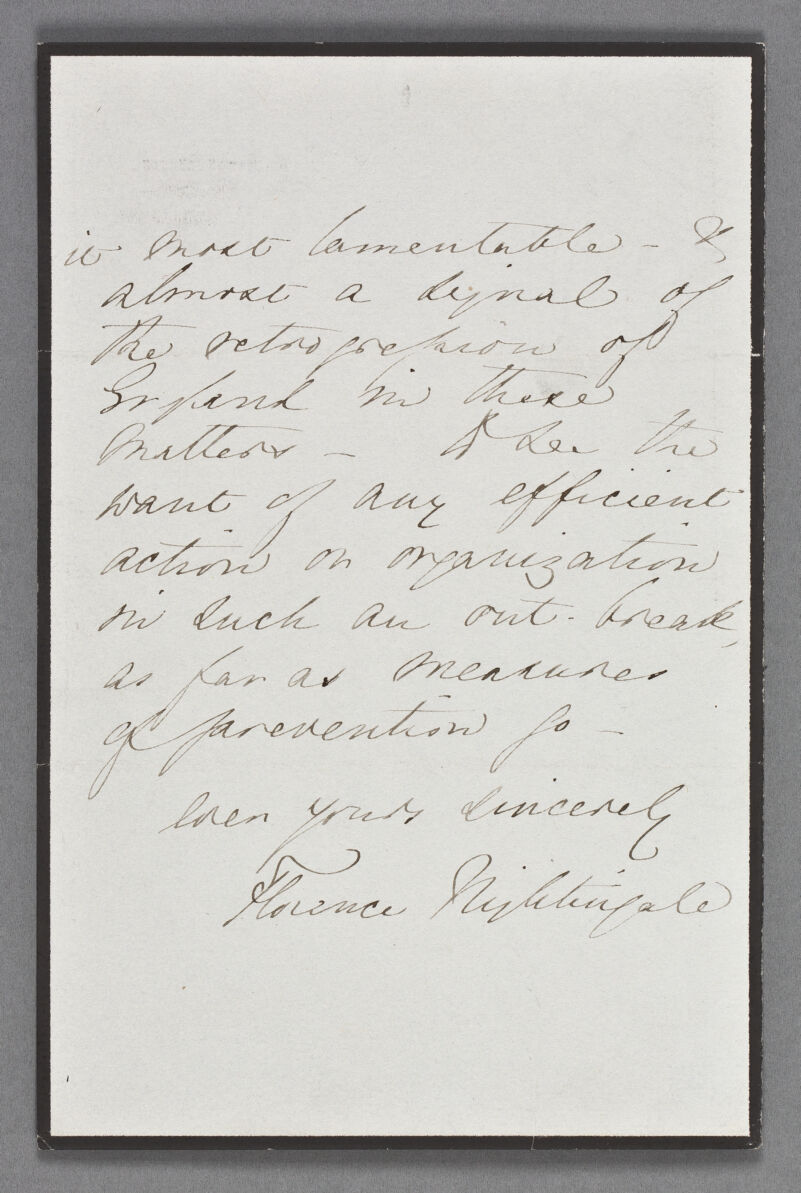 it most lamentable - &
almost a signal of
the retrogression of
England in these
matters - to see the
want of any efficient
action or organization
in such an out-break,
as far as measures
of prevention go -
ever yours sincerely
Florence Nightingale